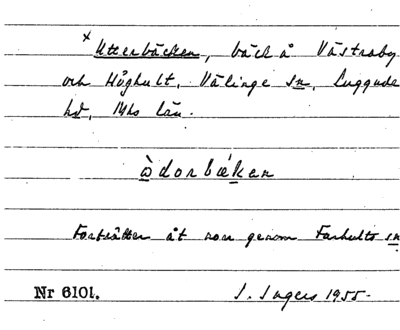 x Utterbäcken, bäck å Västraby
och Höghult, Välinge sn, Luggude
hd, Mhs län.
òdorbæken
Fortsätter åt norr genom Farhults sn
Nr 6101. I. Ingers 1955.